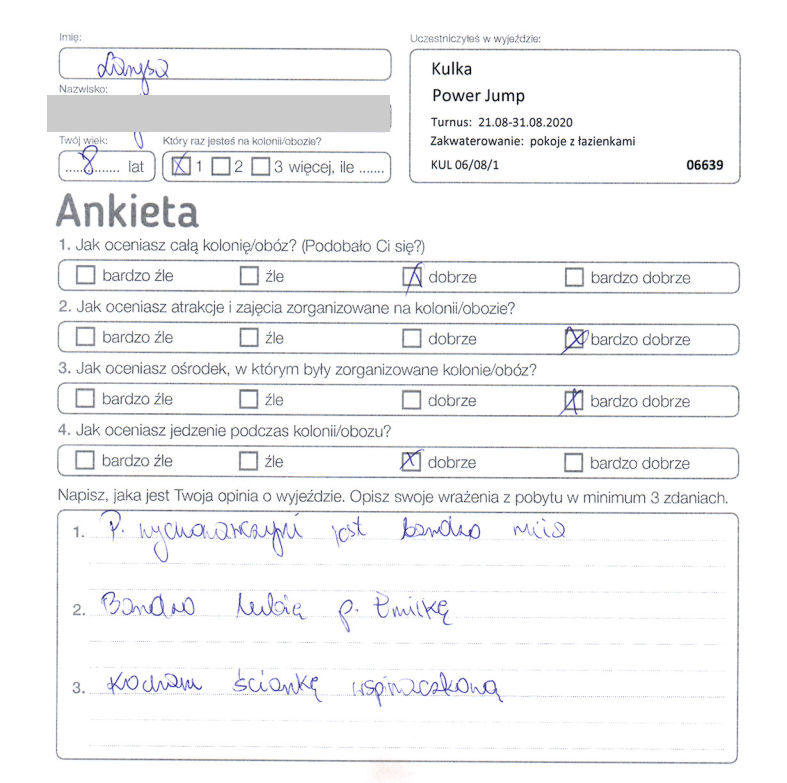 Imię:
Uczestniczyłeś w wyjeździe:
Kulka
Power Jump
Turnus: 21.08-31.08.2020
Zakwaterowanie: pokoje z łazienkami
KUL 06/08/1 06639
Nazwisko:
Twój wiek: Który raz jesteś na kolonii/obozie?
8 lat 1 2 3 więcej, ile .......
Ankieta
1. Jak oceniasz całą kolonię/obóz? (Podobało Ci się?)
bardzo źle źle dobrze bardzo dobrze
2. Jak oceniasz atrakcje i zajęcia zorganizowane na kolonii/obozie?
bardzo źle źle dobrze bardzo dobrze
3. Jak oceniasz ośrodek, w którym były zorganizowane kolonie/obóz?
bardzo źle źle dobrze bardzo dobrze
4. Jak oceniasz jedzenie podczas kolonii/obozu?
bardzo źle źle dobrze bardzo dobrze
Napisz, jaka jest Twoja opinia o wyjeździe. Opisz swoje wrażenia z pobytu w minimum 3 zdaniach.
1. P. wychowawczyni jest bardzo miła
2. Bardzo lubię p. Emilkę
3. Kocham ściankę wspinaczkową